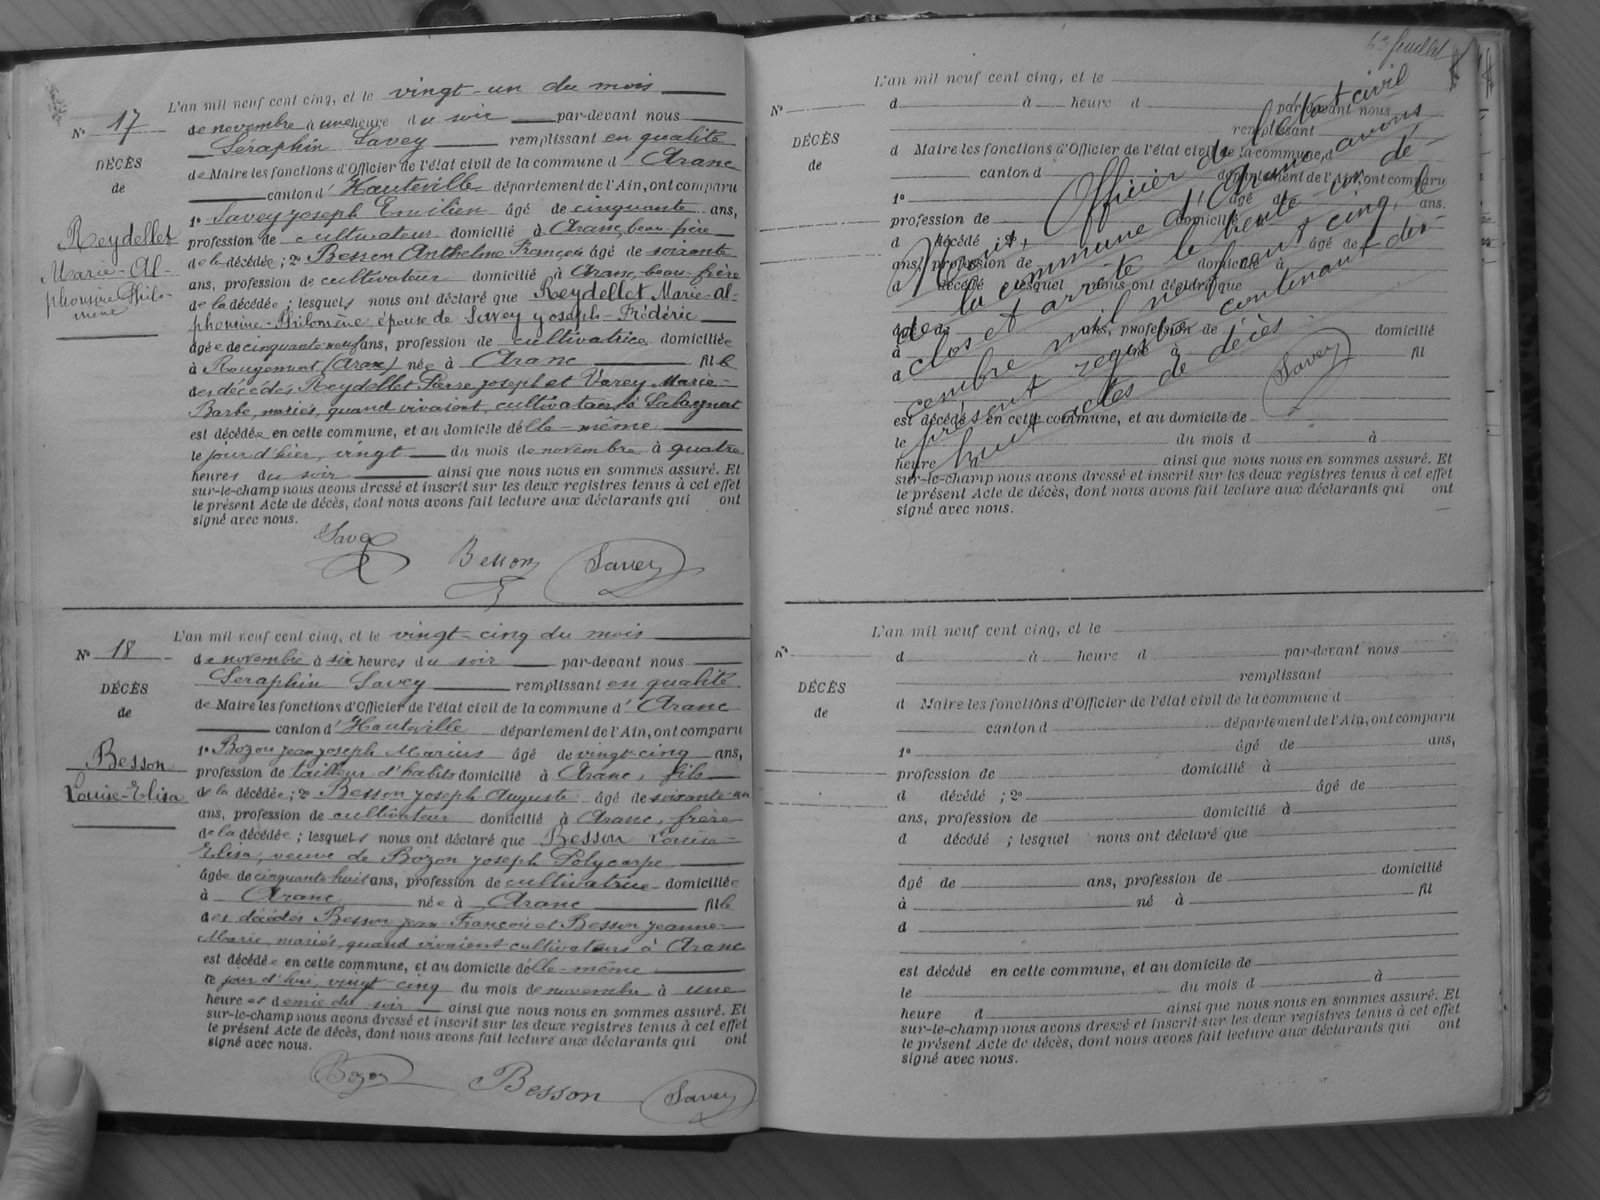 L'an mil neuf cent cinq, et le vingt-un du mois
N° 17
de novembre à une heure du soir par-devant nous
Seraphin Savey remplissant en qualité
DÉCÈS
de Maire les fonctions d'Officier de l'état civil de la commune d' Aranc
de
canton d' Hauteville département de l'Ain, ont comparu
1° Savey Joseph Emilien âgé de cinquante ans,
Reydellet
profession de cultivateur domicilié à Aranc, beau-frère
Marie-Al-
de la décédée ; 2° Besson Anthelme François âgé de soixante
phonsine Philo-
ans, profession de cultivateur domicilié à Aranc, beau-frère
mène
de la décédée ; lesquels nous ont déclaré que Reydellet Marie-Al-
phonsine-Philomène, épouse de Savey Joseph-Frédéric
âgée de cinquante neuf ans, profession de cultivatrice domiciliée
à Rougemont (Aranc) née à Aranc fille
des décédés Reydellet Pierre Joseph et Varey Marie-
Barbe, mariés, quand vivaient, cultivateurs à
est décédée en cette commune, et au domicile d'elle-même
le jour d'hier, vingt du mois de novembre à quatre
heures du soir ainsi que nous nous en sommes assuré. Et
sur-le-champ nous avons dressé et inscrit sur les deux registres tenus à cet effet
le présent Acte de décès, dont nous avons fait lecture aux déclarants qui ont
signé avec nous.
Savey Besson Savey
L'an mil neuf cent cinq, et le vingt-cinq du mois
N° 18
de novembre à six heures du soir par-devant nous
Seraphin Savey remplissant en qualité
DÉCÈS
de Maire les fonctions d'Officier de l'état civil de la commune d' Aranc
de
canton d' Hauteville département de l'Ain, ont comparu
1° Bozon Jean Joseph Marius âgé de vingt-cinq ans,
Besson
profession de tailleur d'habits domicilié à Aranc, fils
Louise-Elisa
de la décédée ; 2° Besson Joseph Auguste âgé de soixante un
ans, profession de cultivateur domicilié à Aranc, frère
de la décédée ; lesquels nous ont déclaré que Besson Louise-
Elisa, veuve de Bozon Joseph Polycarpe
âgée de cinquante huit ans, profession de cultivatrice domiciliée
à Aranc née à Aranc fille
des décédés Besson Jean-François et Besson Jeanne-
Marie, mariés, quand vivaient cultivateurs à Aranc
est décédée en cette commune, et au domicile d'elle-même
le jour d'hui, vingt cinq du mois de novembre à une
heure et demie du soir ainsi que nous nous en sommes assuré. Et
sur-le-champ nous avons dressé et inscrit sur les deux registres tenus à cet effet
le présent Acte de décès, dont nous avons fait lecture aux déclarants qui ont
signé avec nous.
Bozon Besson Savey
feuillet
L'an mil neuf cent cinq, et le
N°
d à heure d par-devant nous
remplissant
DÉCÈS
d Maire les fonctions d'Officier de l'état civil de la commune d
de
canton d département de l'Ain, ont comparu
1° âgé de ans.
profession de domicilié à
d décédé ; 2° âgé de
ans, profession de domicilié à
d décédé lesquel nous ont déclaré que
âgé de ans, profession de domicilié
à né à fil
d
est décédé en cette commune, et au domicile de
le du mois d à
heure ainsi que nous nous en sommes assuré. Et
sur-le-champ nous avons dressé et inscrit sur les deux registres tenus à cet effet
le présent Acte de décès, dont nous avons fait lecture aux déclarants qui ont
signé avec nous.
Nous, Officier de l'état civil
de la commune d'Aranc avons
clos et arrêté le trente un dé-
cembre mil neuf cent cinq, le
présent registre contenant dix-
huit actes de décès.
Savey
L'an mil neuf cent cinq, et le
N°
d à heure d par-devant nous
remplissant
DÉCÈS
d Maire les fonctions d'Officier de l'état civil de la commune d
de
canton d département de l'Ain, ont comparu
1° âgé de ans,
profession de domicilié à
d décédé ; 2° âgé de
ans, profession de domicilié à
d décédé ; lesquel nous ont déclaré que
âgé de ans, profession de domicilié
à né à fil
d
est décédé en cette commune, et au domicile de
le du mois d à
heure d ainsi que nous nous en sommes assuré. Et
sur-le-champ nous avons dressé et inscrit sur les deux registres tenus à cet effet
le présent Acte de décès, dont nous avons fait lecture aux déclarants qui ont
signé avec nous.